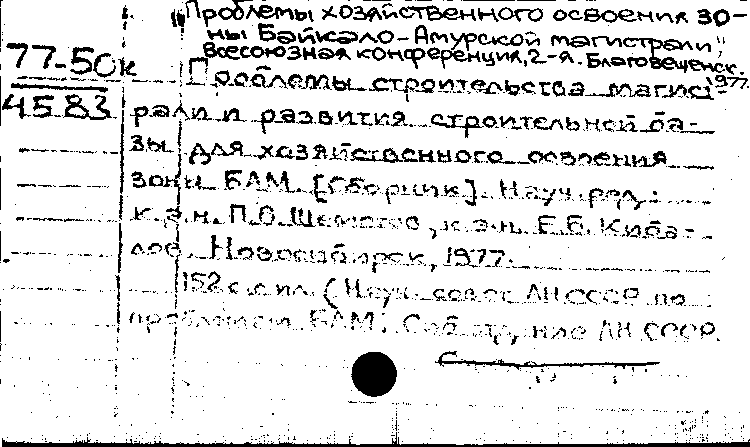 "Проблемы хозяйственного освоения зо-
ны Байкало-Амурской магистрали",
Всесоюзная конференция, 2-я. Благовещенск.
1977
77-50к
4583
Проблемы строительства магист-
рали и развития строительной ба-
зы для хозяйственного освоения
зоны БАМ. [Сборник]. Науч. ред.:
к.э.н. П.О. к.э.н. Е.Б. Киба-
лов. Новосибирск, 1977.
152 с. с ил. (Науч. совет АН СССР по
проблемам БАМ. Сиб. отд-ние АН СССР.